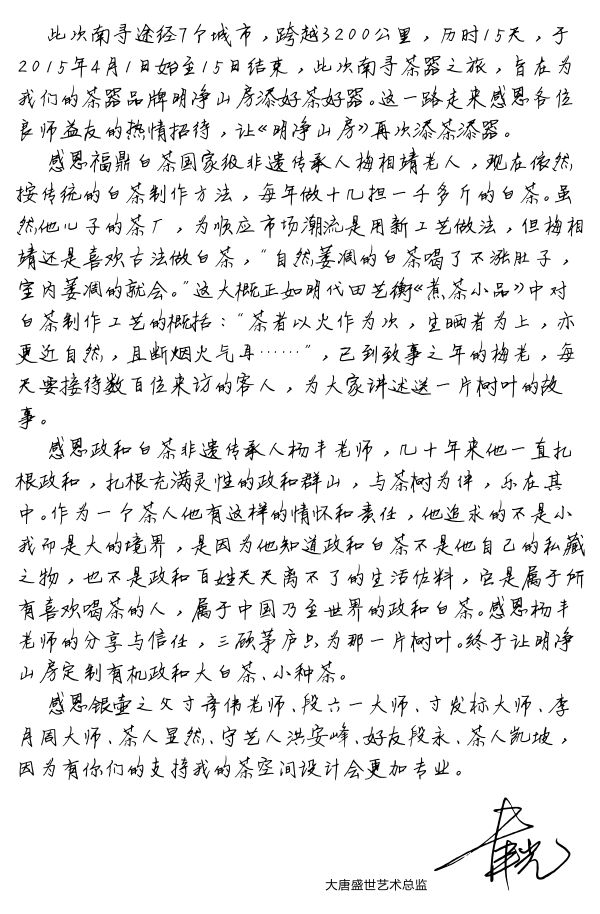 此次南寻途经7个城市，跨越3200公里，历时15天，于
2015年4月1日始至15日结束，此次南寻茶器之旅，旨在为
我们的茶器品牌明净山房添好茶好器。这一路走来感恩各位
良师益友的热情招待，让《明净山房》再次添茶添器。
感恩福鼎白茶国家级非遗传承人梅相靖老人，现在依然
按传统的白茶制作方法，每年做十几担一千多斤的白茶。虽
然他儿子的茶厂，为顺应市场潮流是用新工艺做法，但梅相
靖还是喜欢古法做白茶，"自然萎凋的白茶喝了不涨肚子，
室内萎凋的就会。"这大概正如明代田艺衡《煮茶小品》中对
白茶制作工艺的概括："茶者以火作为次，生晒者为上，亦
更近自然，且断烟火气耳……"，已到致事之年的梅老，每
天要接待数百位来访的客人，为大家讲述送一片树叶的故
事。
感恩政和白茶非遗传承人杨丰老师，几十年来他一直扎
根政和，扎根充满灵性的政和群山，与茶树为伴，乐在其
中。作为一个茶人他有这样的情怀和责任，他追求的不是小
我而是大的境界，是因为他知道政和白茶不是他自己的私藏
之物，也不是政和百姓天天离不了的生活佐料，它是属于所
有喜欢喝茶的人，属于中国乃至世界的政和白茶。感恩杨丰
老师的分享与信任，三顾茅庐只为那一片树叶。终于让明净
山房定制有机政和大白茶、小种茶。
感恩银壶之父寸彦伟老师、段六一大师、寸发标大师、李
月周大师、茶人显然、守艺人洪安峰、好友段永、茶人凯坡，
因为有你们的支持我的茶空间设计会更加专业。
大唐盛世艺术总监